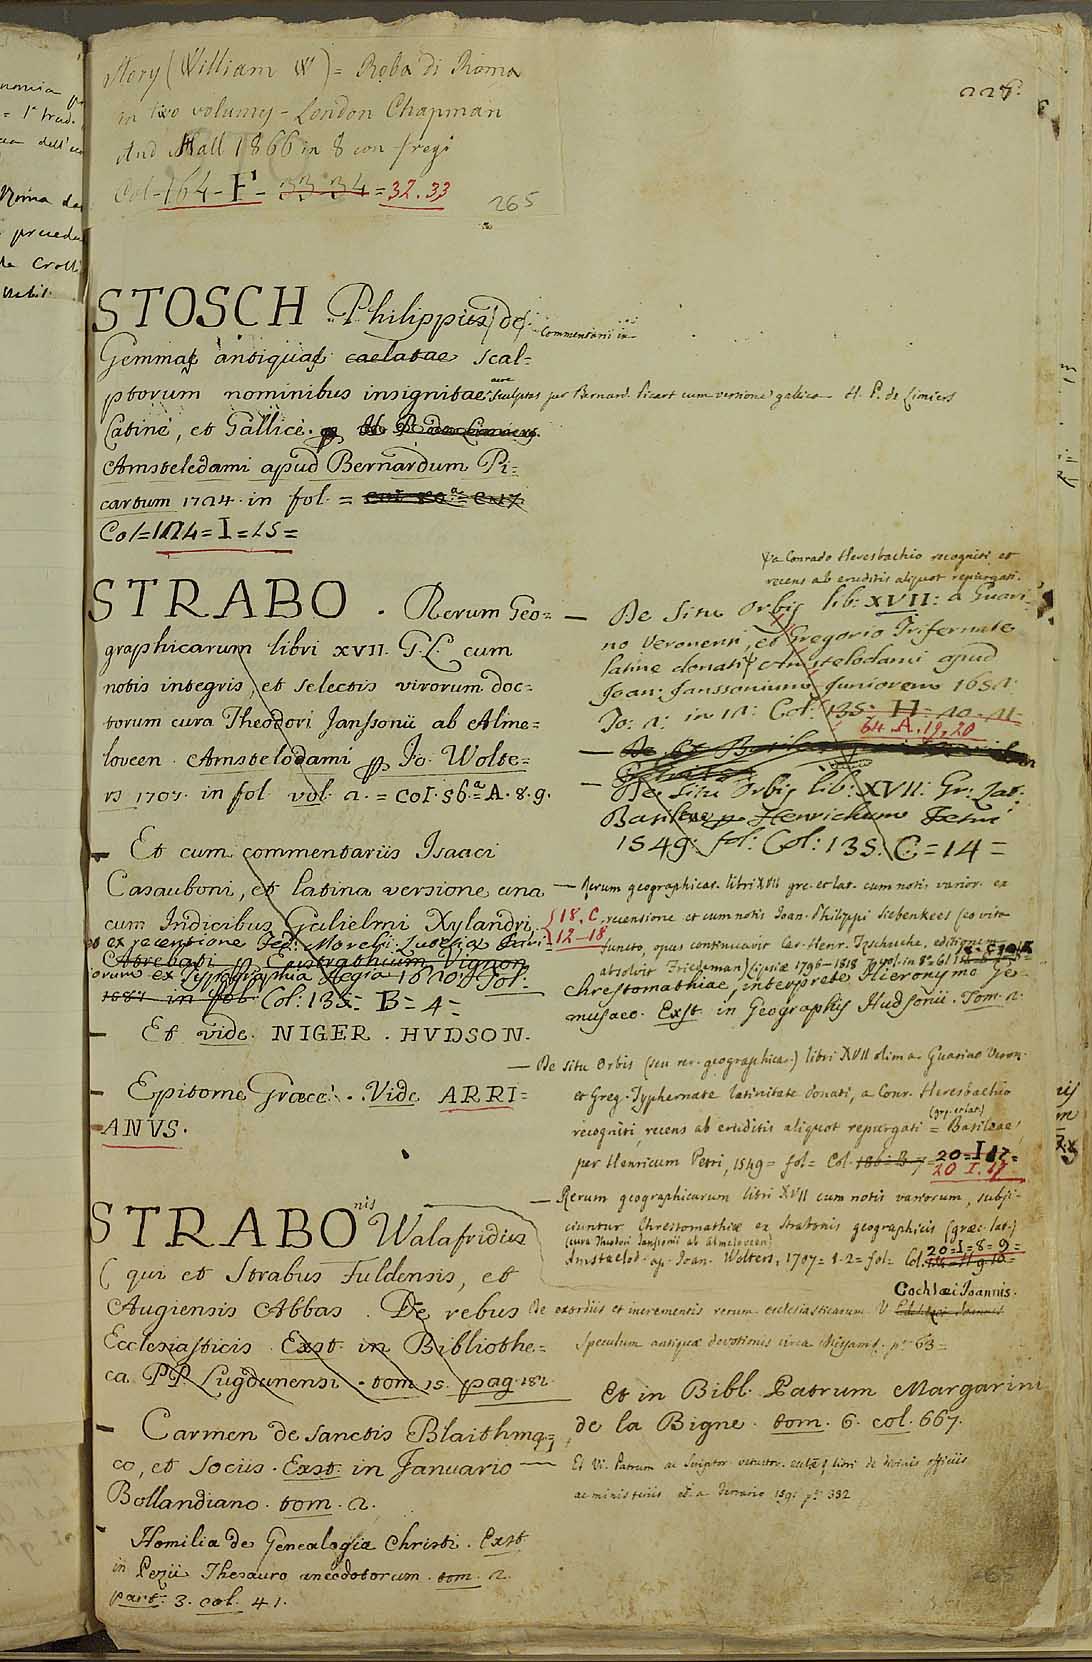 Story (William W) = Roba di Roma
in two volumy - London Chapman
And Hall 1866 in 8 con fregi
Col - 164 - F - 33 34 = 32. 33
265
227.
STOSCH Philippus de Commentarii in
Gemmas antiquas caelatae scal=
ptorum nominibus insignitae aere sculptas per Bernard. Picart cum versione gallica H. P. de Limiers
Latinè, et Gallicè.
Amsteledami apud Bernardum Pi=
cartum 1724. in fol. =
Col=124=I=15=
STRABO. Rerum Geo=
graphicarum libri XVII. G.L. cum
notis integris, et selectis virorum doc=
torum cura Theodori Janssonii ab Alme=
loveen. Amstelodami Jo. Wolte=
rs 1707. in fol. vol. 2. = Col. 56.a A. 8. 9.
Et cum commentariis Isaaci
Casauboni, et latina versione una
cum Indicibus Gulielmi Xylandri.
et ex recensione Fed: Morelli. Lutetiæ Pari=
Atrebati Eustathium Vignon
orum ex Typographia Regia 1620. Fol.
1587 in fol. Col: 135= B= 4=
Et vide. NIGER. HVDSON.
Epitome Græcè. Vide ARRI=
ANVS.
STRABOnis Walafridus
(qui et Strabus Fuldensis, et
Augiensis Abbas. De rebus
Ecclesiasticis. Exst. in Bibliothe=
ca PP. Lugdunensi. tom 15. pag. 181.
Carmen de sanctis Blaithma=
co, et sociis. Exst. in Januario
Bollandiano. tom. 2.
Homilia de Genealogia Christi. Exst.
in Pezii Thesauro anecdotorum. tom. 2.
part. 3. col. 41.
a Conrado Heresbachio recogniti et
recens ab eruditis aliquot repurgati.
De Situ Orbis lib: XVII: a Guari=
no Veronensi, et Gregorio Trifernate
latine donati Amstelodami apud
Joan: Janssonium Juniorem 1652:
To: 2: in 12: Col: 135: H= 20. 21
64. A. 19, 20
De Situ Orbis lib: XVII: Gr: Lat:
Basileæ p Henrichum Petri
1549: fol: Col: 135. C=14=
Rerum geographicar. libri XVII grc. et lat. cum notis varior. ex
18. C.
12-18
recensione et cum notis Joan. Philippi Siebenkees (eo vita
functo, opus continuavit Car. Henr. Tzschucke, editionem
absolvit Friedeman) Lipsiæ 1796-1818 7 vol. in 8°
Chrestomathiae, interprete Hieronymo Ge=
musaeo. Exst. in Geographis Hudsonii. Tom. 2.
De Situ Orbis (seu rer. geographicar.) libri XVII olim a Guarino Veron.
et Greg. Typhernate latinitate donati, a Conr. Heresbachio
recogniti, recens ab eruditis aliquot repurgati (grc. et lat.) = Basileae,
per Henricum Petri, 1549= fol= Col. 186=B 7= 20=I 17=
20 I. 17
Rerum geographicarum libri XVII cum notis variorum, subji=
ciuntur Chrestomathiæ ex Strabonis geographicis (græc. lat.)
(cura Theodori Janssonii ab Almeloveen)
Amstaelod. ap. Joan. Wolters, 1707= t. 2= fol= Col. 20=I=8=9=
Cochlæi Joannis.
De exordiis et incrementis rerum ecclesiasticarum V.
Speculum antiquæ devotionis circa Missam p. 63=
Et in Bibl. Patrum Margarini
de la Bigne. tom. 6. col. 667.